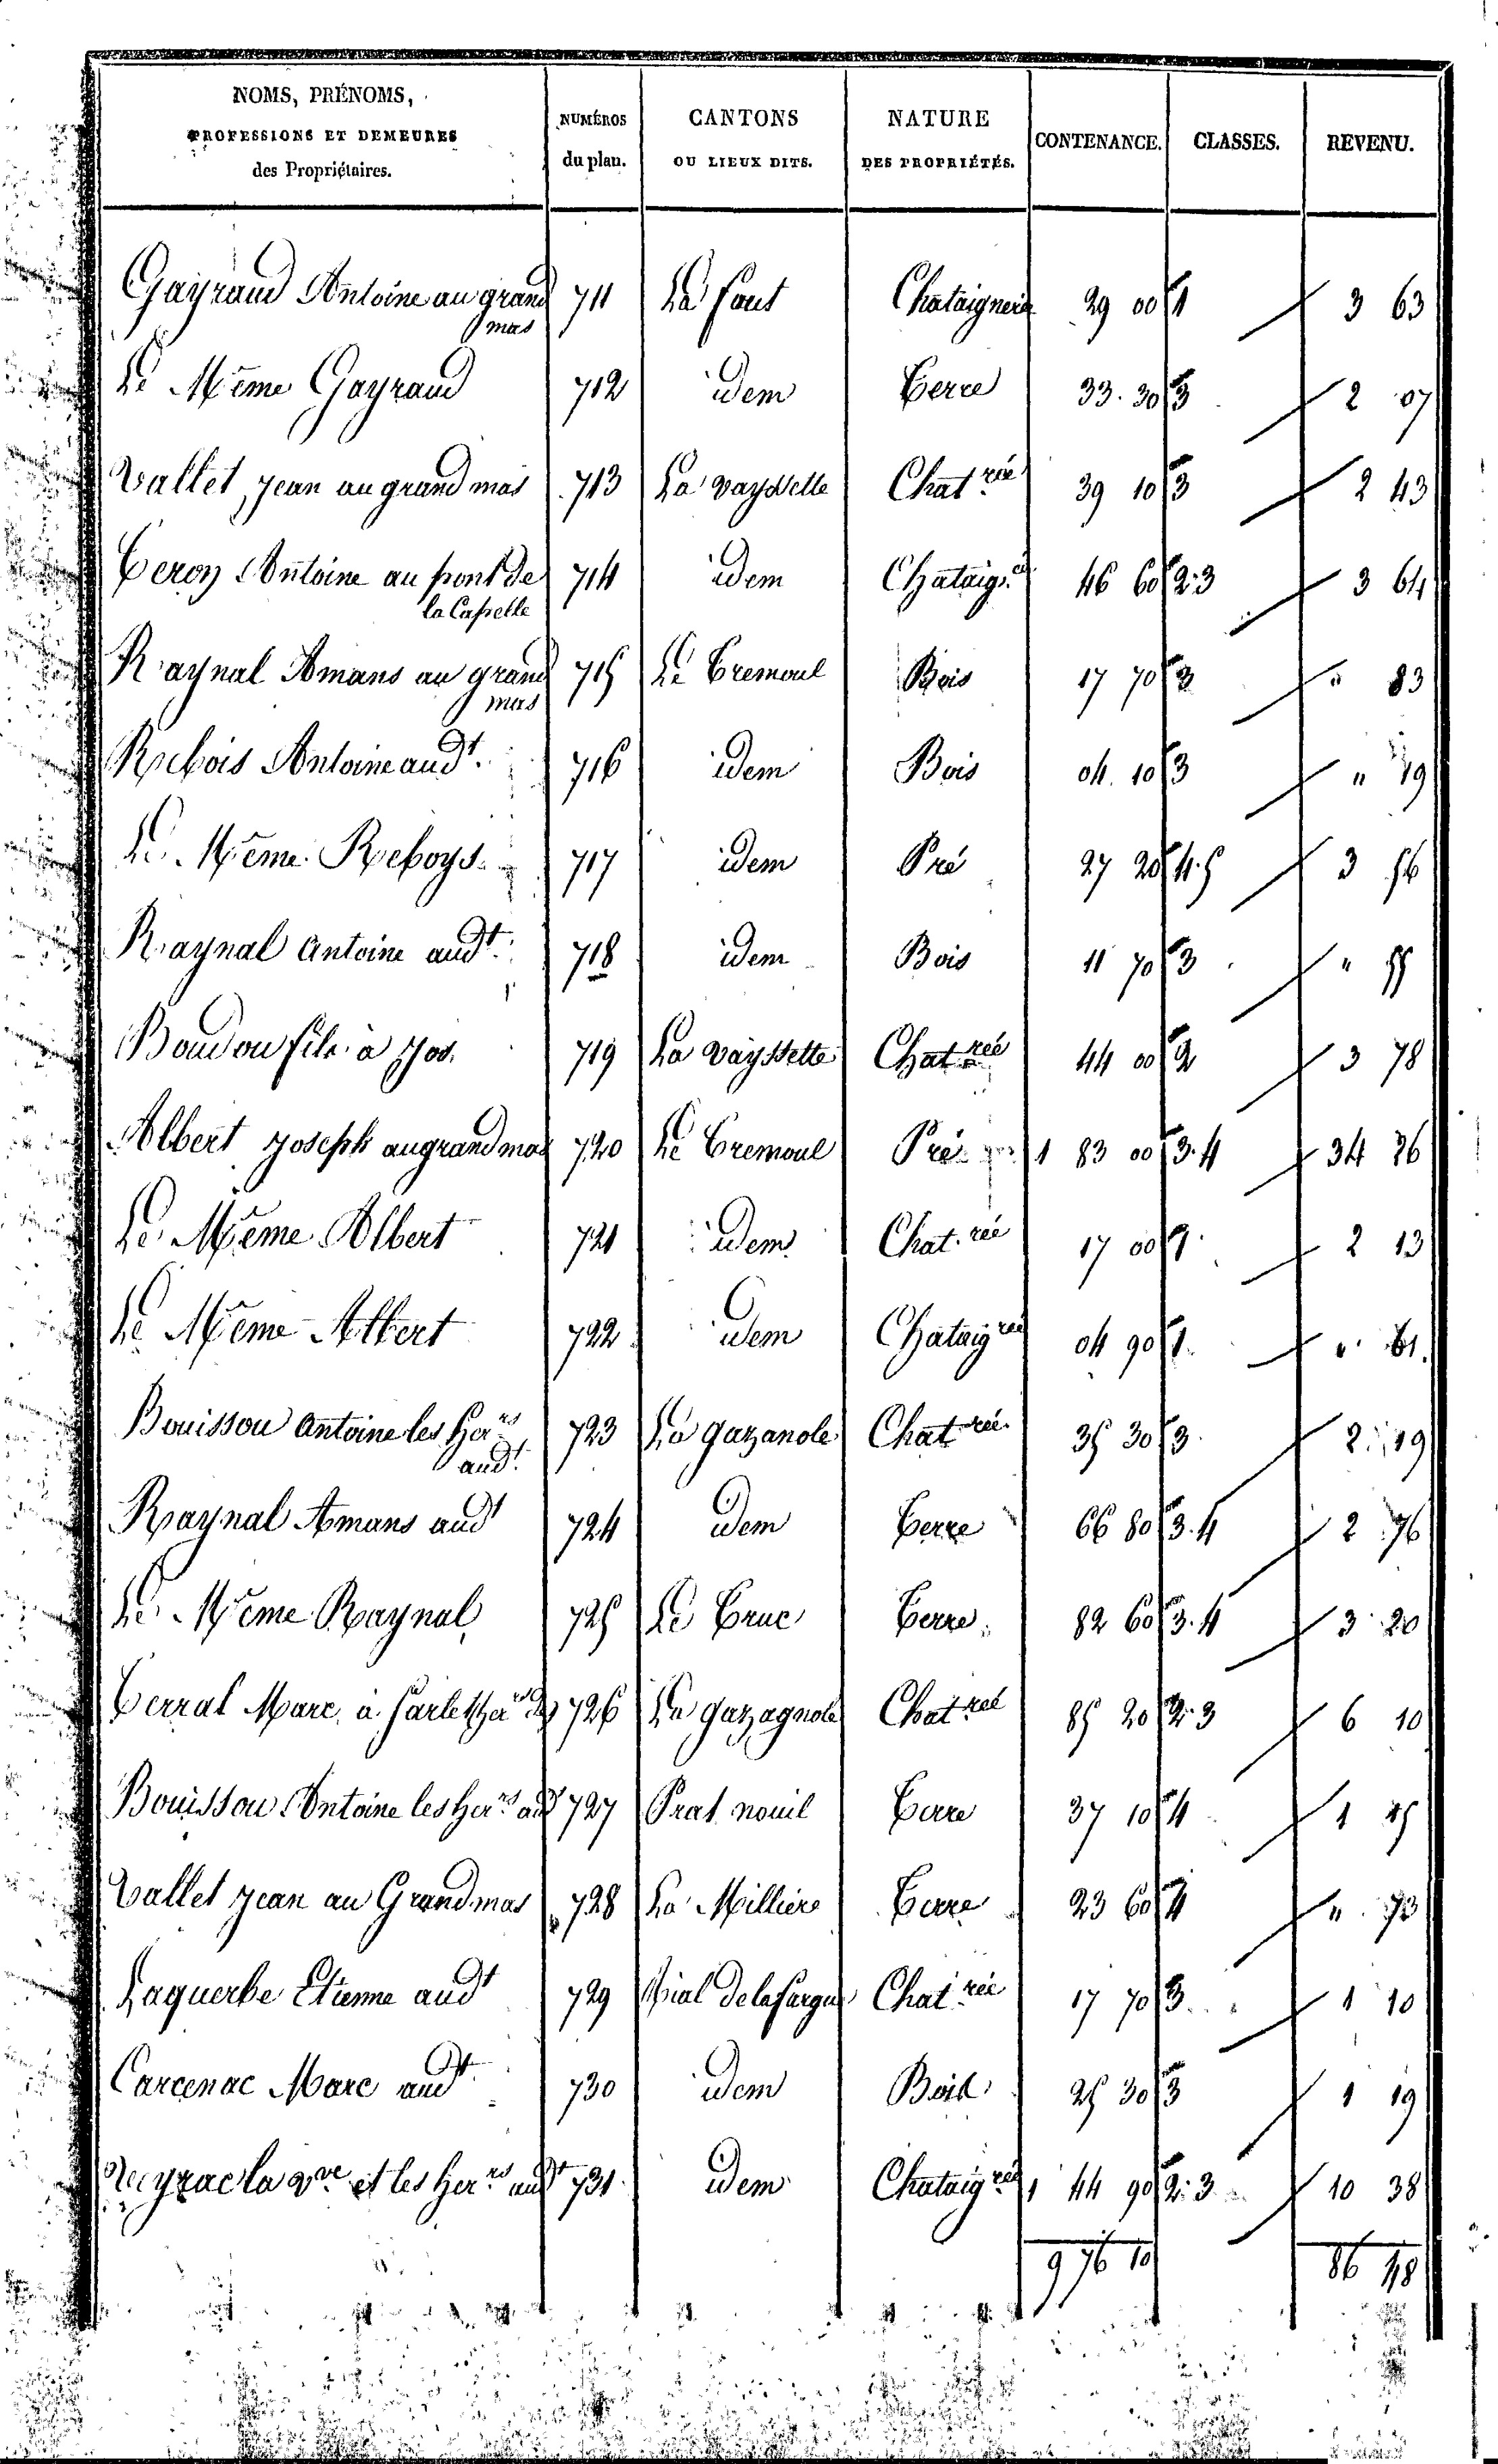 NOMS, PRÉNOMS, PROFESSIONS ET DEMEURES des Propriétaires. NUMÉROS du plan. CANTONS OU LIEUX DITS. NATURE DES PROPRIÉTÉS. CONTENANCE. CLASSES. REVENU.
Gayraud Antoine au grand mas 711 La font Chataigneraie 29 00 1 3 63
Le Même Gayraud 712 idem Terre 33. 30 3 2 07
Vallet Jean au grand mas 713 La vayssette Chat rée 39 10 3 2 43
Teron Antoine au pont de la Capelle 714 idem Chataig. 46 60 2.3 3 64
Raynal Amans au grand mas 715 Le Tremoul Bois 17 70 3 " 83
Rebois Antoine aud t. 716 idem Bois 04. 10 3 " 19
Le Même Reboys 717 idem Pré 27 20 4.5 3 56
Raynal antoine aud t. 718 idem Bois 11 70 3 " 55
Boudou fils à Jos. 719 La vayssette Chat rée 44 00 2 3 78
Albert Joseph au grand mas 720 Le Tremoul Pré 1 83 00 3.4 34 36
Le Même Albert 721 idem Chat. rée 17 00 1 2 13
Le Même Albert 722 idem Chataig rée 04 90 1 " 61
Bouissou antoine les her rs aud t. 723 La gazanole Chat rée 35 30 3 2 19
Raynal Amans aud t 724 idem Terre 66 80 3.4 2 76
Le Même Raynal 725 Le Truc Terre 82 60 3.4 3 20
Terral Marc à farlet 726 La gazagnole Chat rée 85 20 2.3 6 10
Bouissou Antoine les her rs aud t 727 Prat nouil Terre 37 10 4 1 15
Vallet Jean au Grand mas 728 La Millière Terre 23 60 4 " 73
Laquerbe Etienne aud t 729 de la fargue Chat rée 17 70 3 1 10
Carcenac Marc aud t 730 idem Bois 25 30 3 1 19
la v ve et les her rs aud t 731 idem Chataig rée 1 44 90 2.3 10 38
9 76 10 86 48